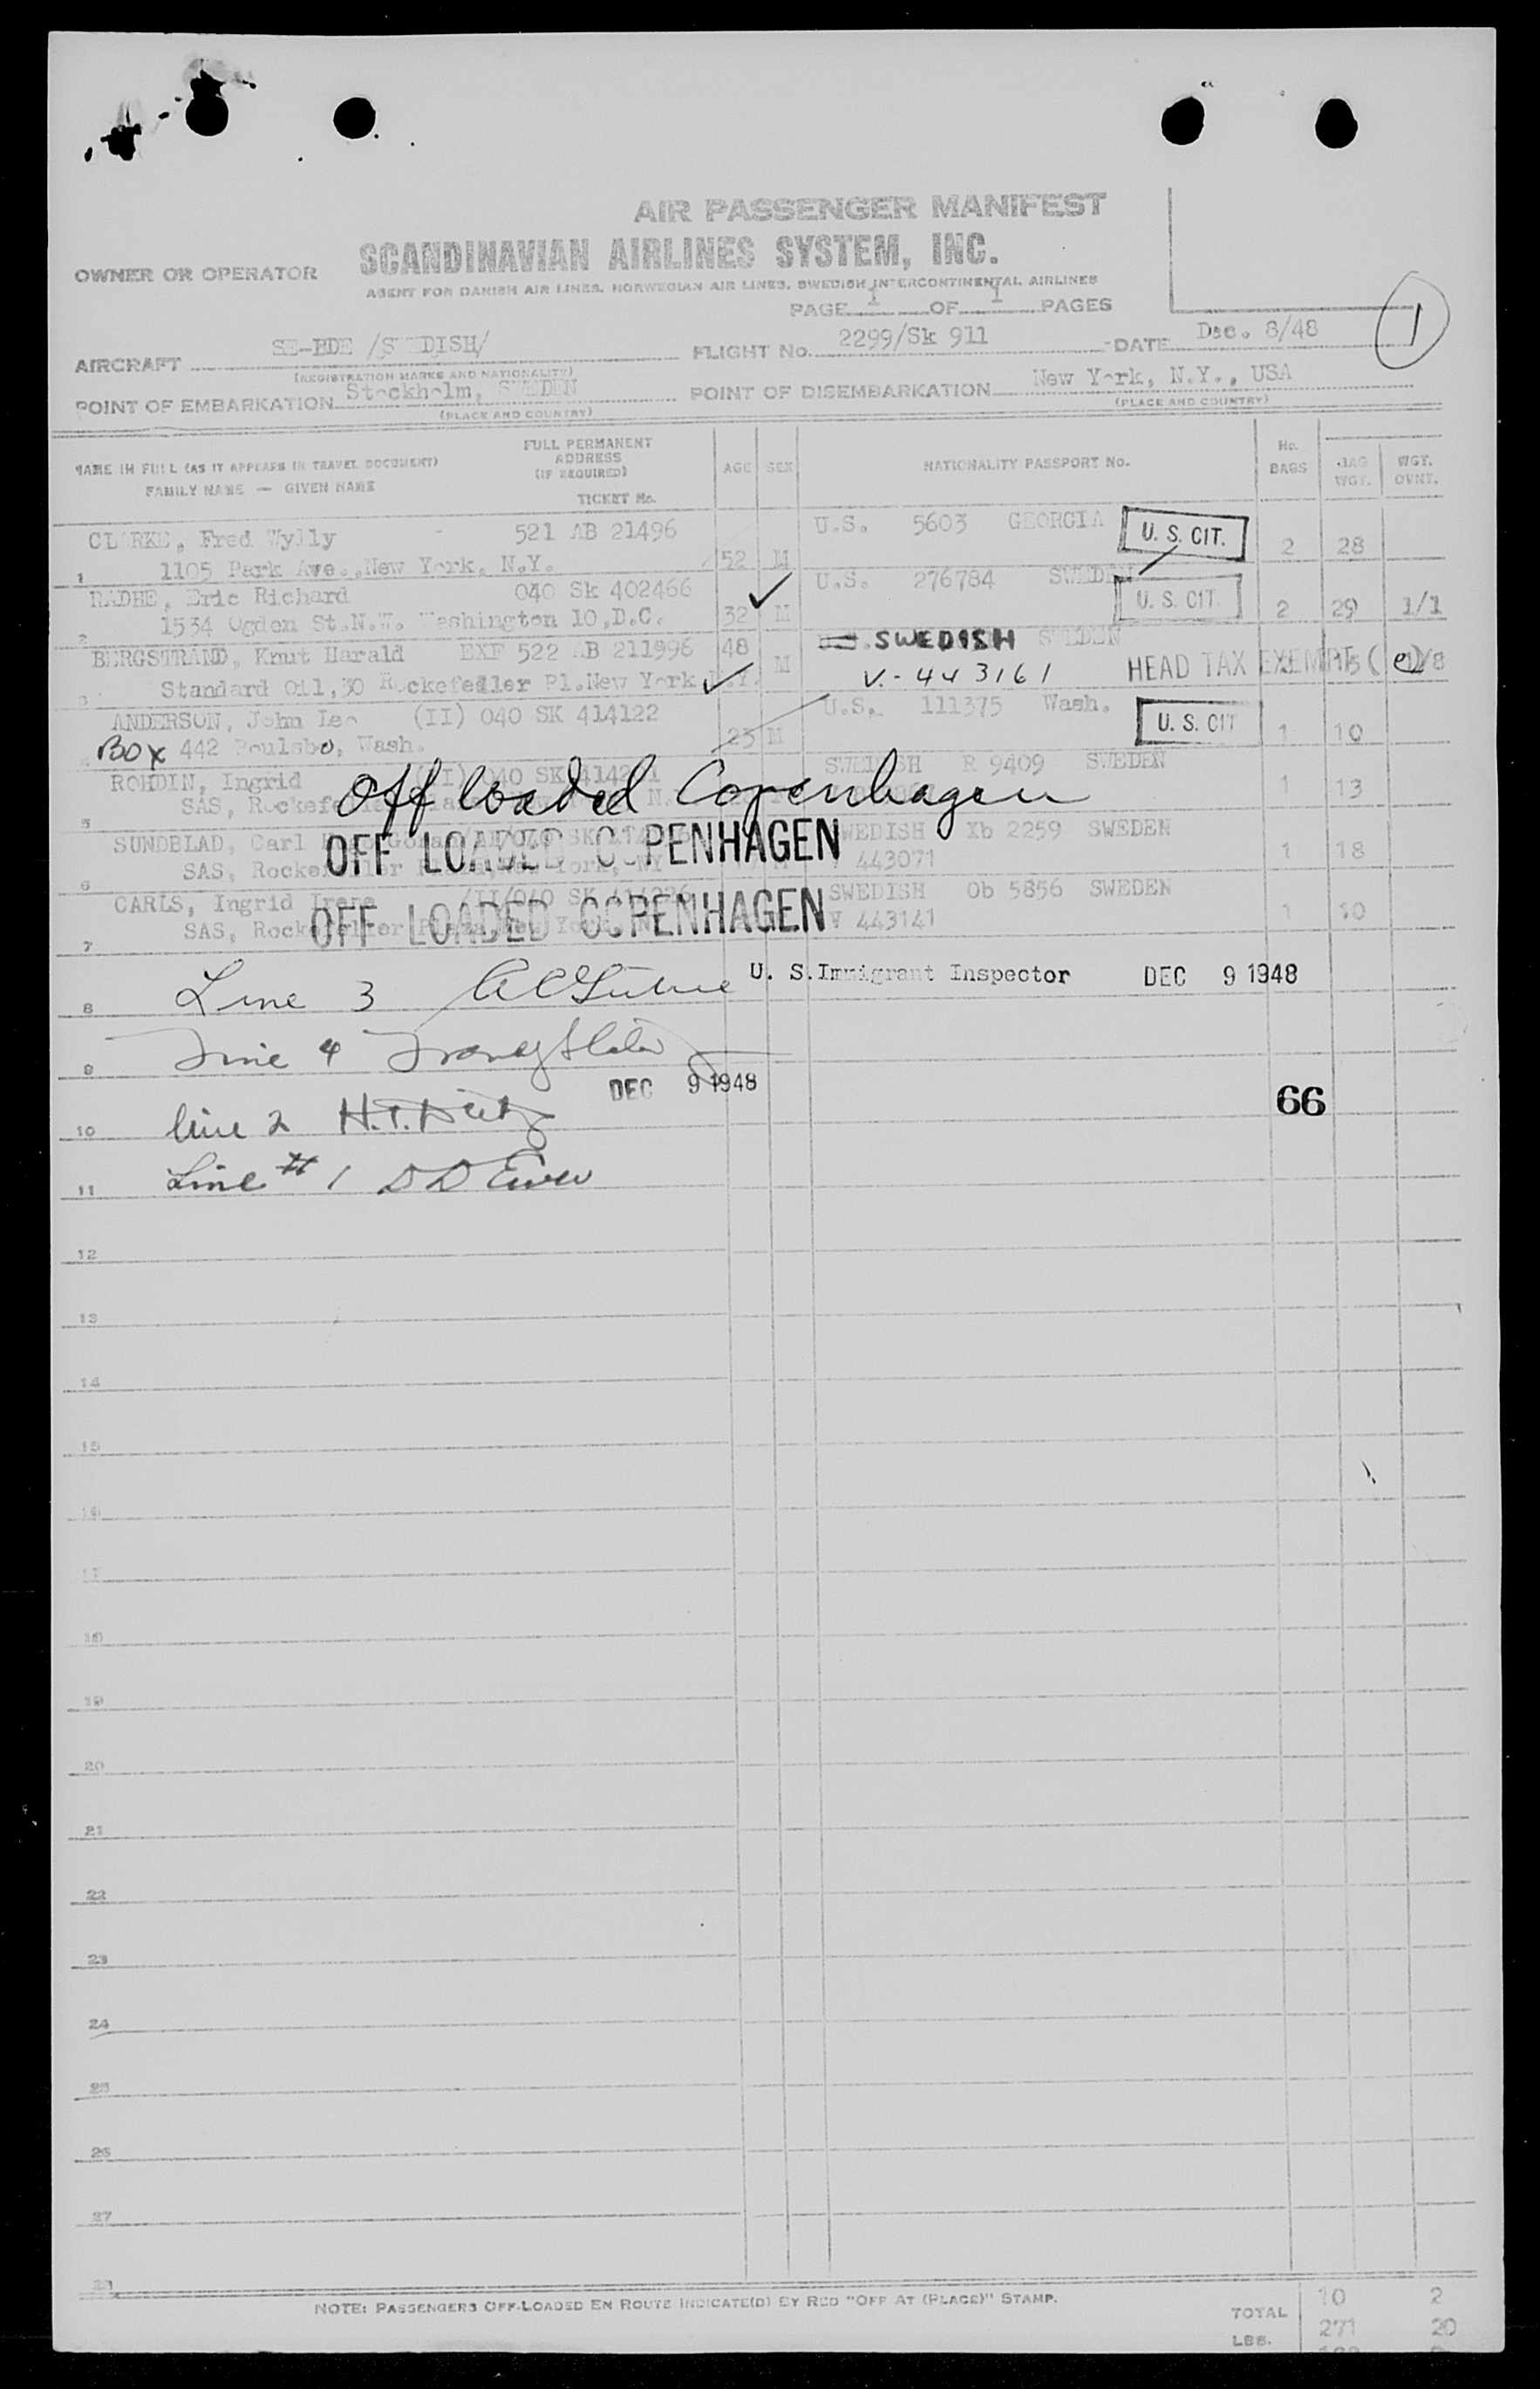 AIR PASSENGER MANIFEST
OWNER OR OPERATOR SCANDINAVIAN AIRLINES SYSTEM, INC.
AGENT FOR DANISH AIR LINES, NORWEGIAN AIR LINES, SWEDISH INTERCONTINENTAL AIRLINES
PAGE 1 OF 1 PAGES
1
AIRCRAFT SE-BDE /SWEDISH/ FLIGHT No. 2299/Sk 911 DATE Dec. 8/48
(REGISTRATION MARKS AND NATIONALITY)
POINT OF EMBARKATION Stockholm, SWEDEN POINT OF DISEMBARKATION New York, N.Y., USA
(PLACE AND COUNTRY) (PLACE AND COUNTRY)
NAME IN FULL (AS IT APPEARS IN TRAVEL DOCUMENT) FAMILY NAME — GIVEN NAME
FULL PERMANENT ADDRESS (IF REQUIRED) TICKET No.
AGE SEX NATIONALITY PASSPORT No. No. BAGS BAG WGT. WGT. OVWT.
CLARKE, Fred Wylly 521 AB 21496 U.S. 5603 GEORGIA U. S. CIT.
1 1105 Park Ave., New York, N.Y. 52 M 2 28
RADHE, Eric Richard 040 Sk 402466 U.S. 276784 SWEDEN U. S. CIT.
2 1534 Ogden St.N.W. Washington 10,D.C. 32 M 2 29 1/1
BERGSTRAND, Knut Harald EXF 522 AB 211996 48 M SWEDISH SWEDEN
3 Standard Oil,30 Rockefeller Pl.New York N.Y. V.- 443161 HEAD TAX EXEMPT (e)
ANDERSON, John Leo (II) 040 SK 414122 U.S. 111375 Wash. U. S. CIT
4 BOX 442 Poulsbo, Wash. 23 M 1 10
ROHDIN, Ingrid SWEDISH R 9409 SWEDEN 1 13
Off loaded Copenhagen
5 SAS,
SUNDBLAD, Carl SWEDISH Xb 2259 SWEDEN
OFF LOADED COPENHAGEN
6 SAS, Rockefeller V 443071 1 18
CARLS, Ingrid Irene SWEDISH Ob 5856 SWEDEN
OFF LOADED COPENHAGEN
7 SAS, Rockefeller V 443141 1 10
8 Line 3 U. S. Immigrant Inspector DEC 9 1948
9 Line 4
DEC 9 1948
66
10 line 2
11 Line # 1
12
13
14
15
16
17
18
19
20
21
22
23
24
25
26
27
28
NOTE: PASSENGERS OFF-LOADED EN ROUTE INDICATE(D) BY RED "OFF AT (PLACE)" STAMP.
TOTAL 10 2
LBS. 271 20